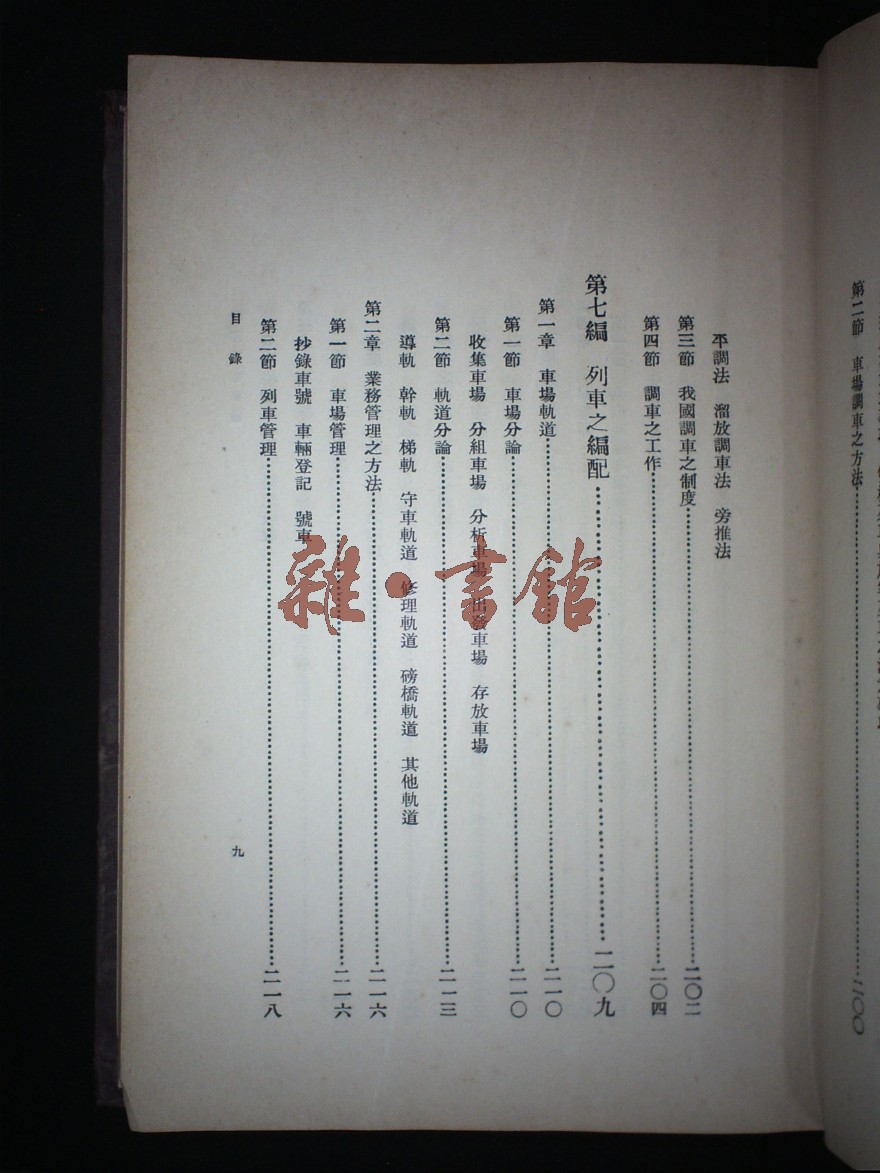 第二節　車場調車之方法……二〇〇
平調法　溜放調車法　旁推法
第三節　我國調車之制度……二〇二
第四節　調車之工作……二〇四
第七編　列車之編配……二〇九
第一章　車場軌道……二一〇
第一節　車場分論……二一〇
收集車場　分組車場　分析車場　出發車場　存放車場
第二節　軌道分論……二一三
導軌　幹軌　梯軌　守車軌道　修理軌道　磅橋軌道　其他軌道
第二章　業務管理之方法……二一六
第一節　車場管理……二一六
抄錄車號　車輛登記　號車
第二節　列車管理……二一八
目錄　九
雜·書館